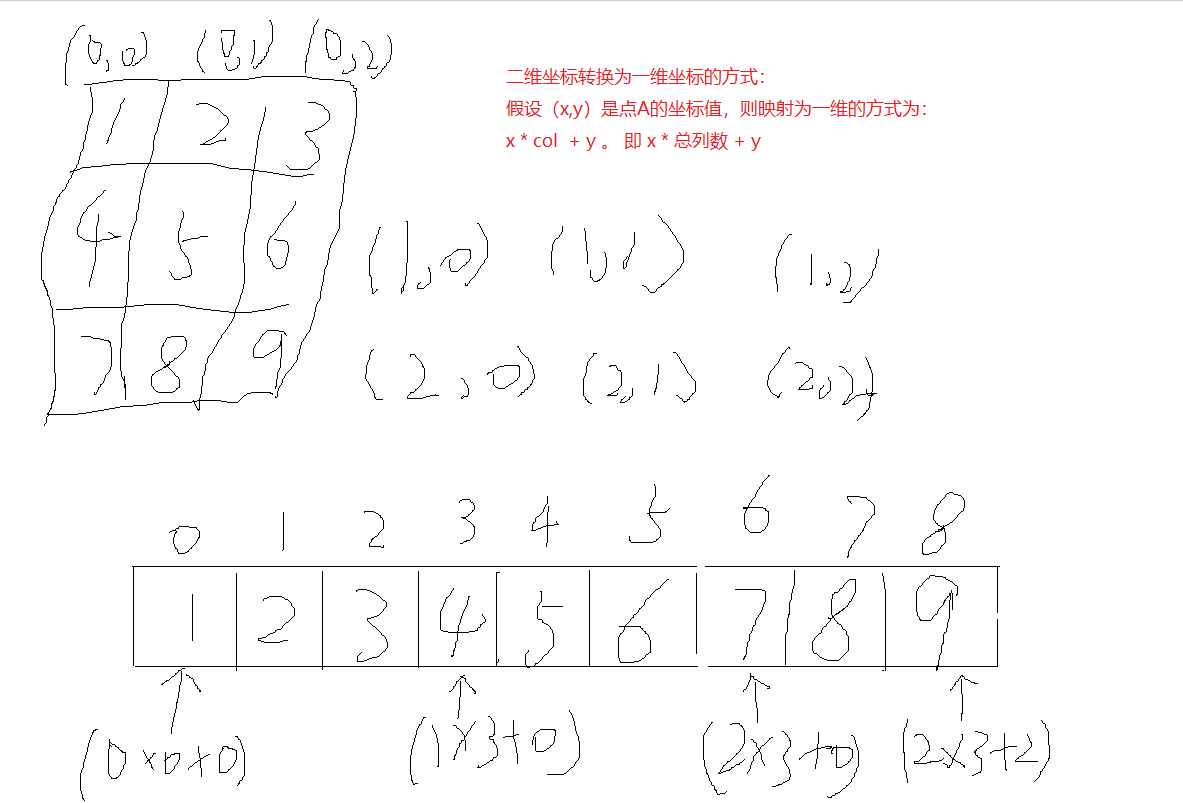 (0,0) (0,1) (0,2)
二维坐标转换为一维坐标的方式：
假设（x,y）是点A的坐标值，则映射为一维的方式为：
x * col + y 。 即 x * 总列数 + y
1 2 3
4 5 6 (1,0) (1,1) (1,2)
7 8 9 (2,0) (2,1) (2,2)
0 1 2 3 4 5 6 7 8
1 2 3 4 5 6 7 8 9
(0×0×0) (1×3+0) (2×3+0) (2×3+2)